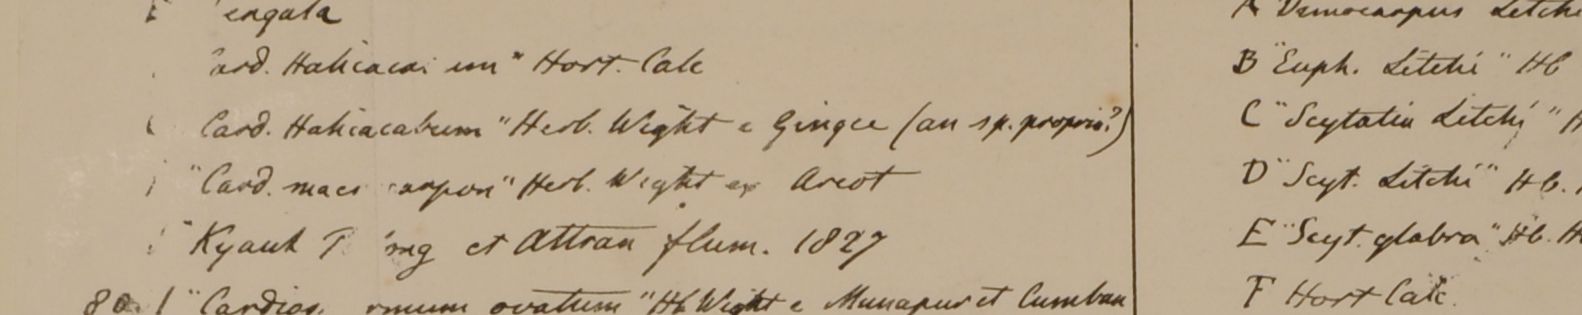 engala
ard. Halicaca um" Hort. Calc
Card. Halicacabum" Herb. Wight e Gingee (an sp. propria?)
"Card. mac carpon" Herb. Wight ex Arcot
Kyauk T ng et Attran flum. 1827
80 1 "Cardios rmum ovatum" Hb Wight e Munapur et Cumban
A Dimocarpus Litchi
B "Euph. Litchi" Hb
C "Scytalia Litchi" H
D "Scyt. Litchi" Hb.
E "Scyt. glabra" Hb. H
F Hort Calc.